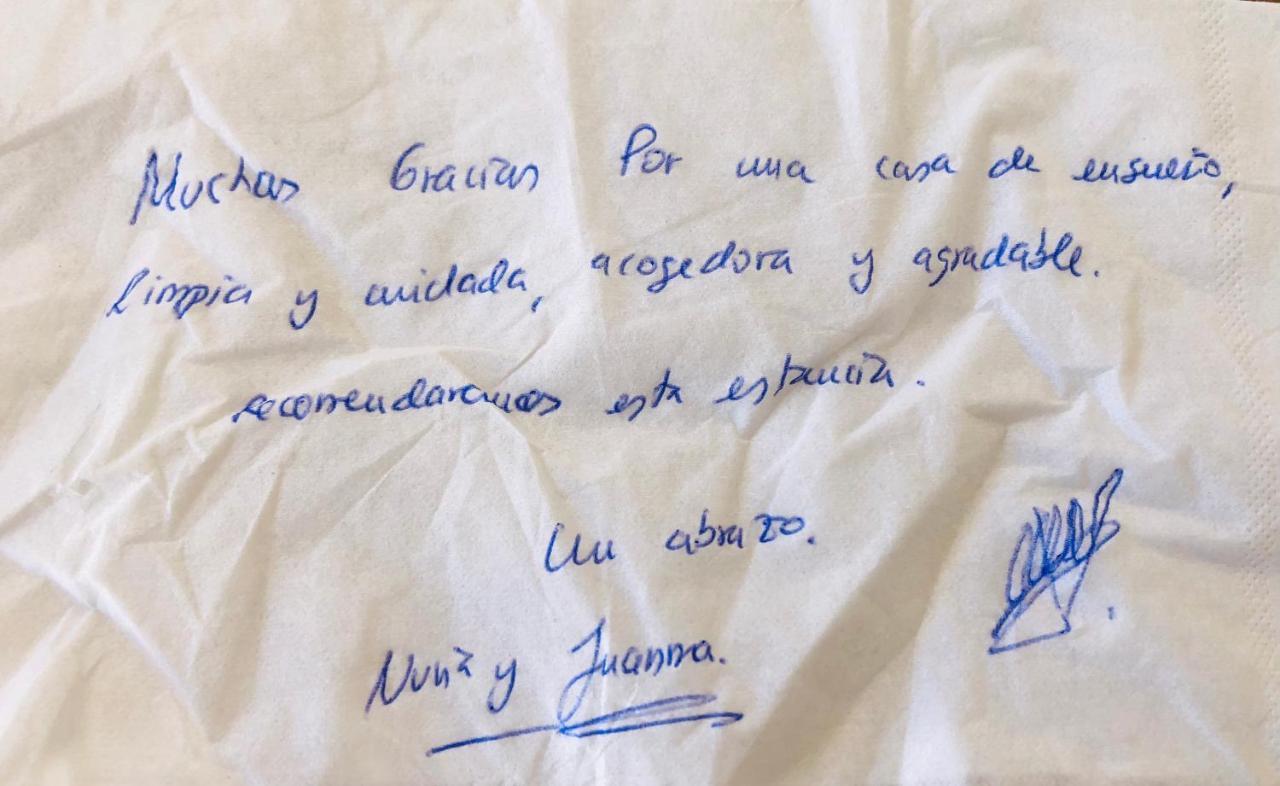 Muchas Gracias Por una casa de ensueño,
limpia y cuidada, acogedora y agradable.
recomendaremos esta estancia.
Un abrazo.
Nuria y Juanma.